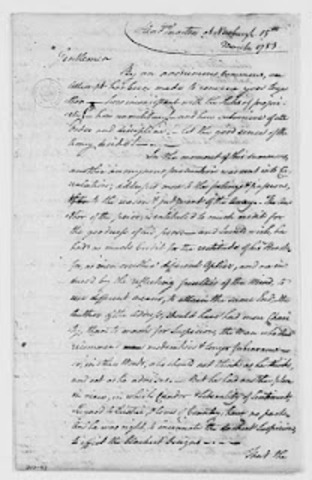 Head Quarters Newburgh 15th
March 1783.
Gentlemen
By an anonymous summons, an
attempt has been made to convene you toge
ther — how inconsistent with the rules of propri
ety! how unmilitary! and how subversive of all
order and discipline — let the good sense of the
Army decide. —
In the moment of this summons,
another anonymous production was sent into Cir
culation; addressed more to the feelings & passions,
than to the reason & judgment of the Army. — The Au
thor of the piece, is entitled to much credit for
the goodness of his Pen: — and I could wish he
had as much credit for the rectitude of his Heart
for, as men see thro' different Optics, and are in
duced by the reflecting faculties of the Mind, to
use different means, to attain the same end; the
Author of the Address, should have had more Chari
ty, than to mark for Suspicion, the Man who should
recommend moderation & longer forbearance —
or, in other Words, who should not think as he thinks,
and act as he advises. — But he had another plan
in view, in which Candor & liberality of Sentiment,
Regard to Justice, & love of Country, have no part;
and he was right, to insinuate the darkest suspicion,
to effect the blackest designs. —
That the